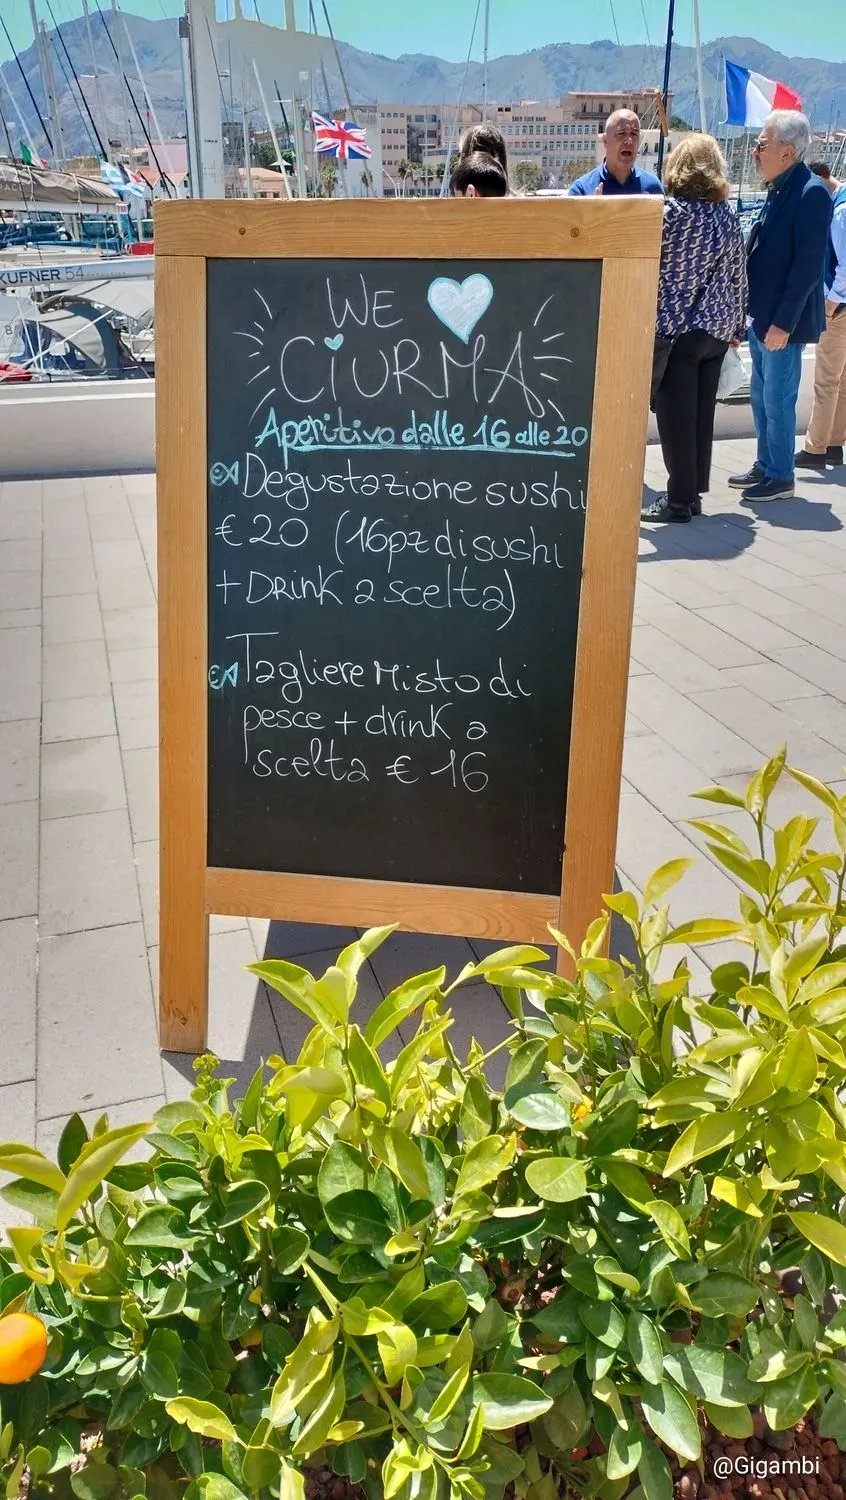 KUFNER 54
WE
CiURMA
Aperitivo dalle 16 alle 20
Degustazione sushi
€20 (16pz di sushi
+ DRinK a scelta)
Tagliere Misto di
pesce + drink a
scelta € 16
@Gigambi